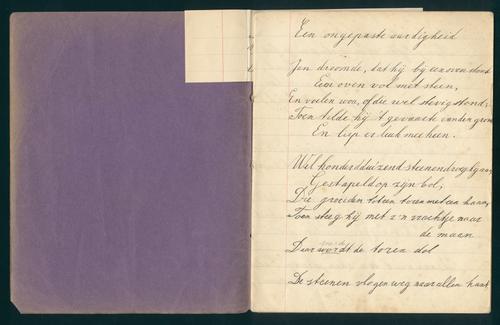 Een ongepaste aardigheid
Jan droomde, dat hij bij een oven stond
Een oven vol met steen,
En voelen wou, of die wel stevig stond;
Toen tilde hij 't gevaarte van den grond
En liep er leuk mee heen.
Wel honderdduizend steenen droeg hij
Gestapeld op zijn bol;
Die groeiden tot een toren met een haan,
Toen steeg hij met z'n vrachtje naar
de maan
Daar wordt de toren dol
De steenen vlogen weg naar allen kant